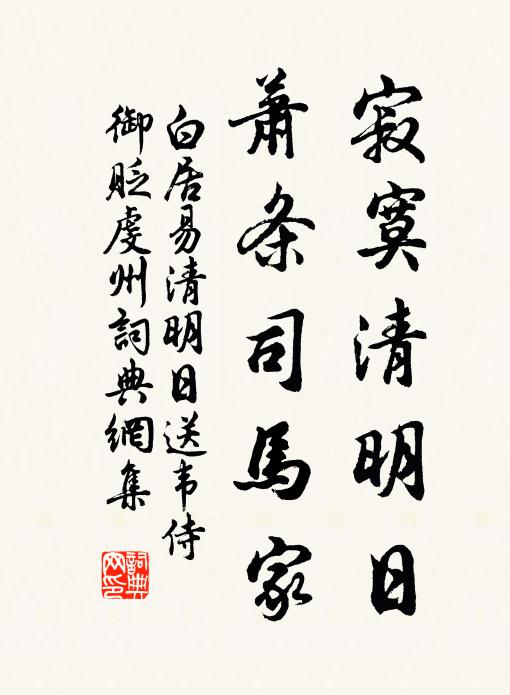 寂寞清明日
蕭条司馬家
白居易清明日送韦侍
御贬虔州詞典網集
詞典
网印